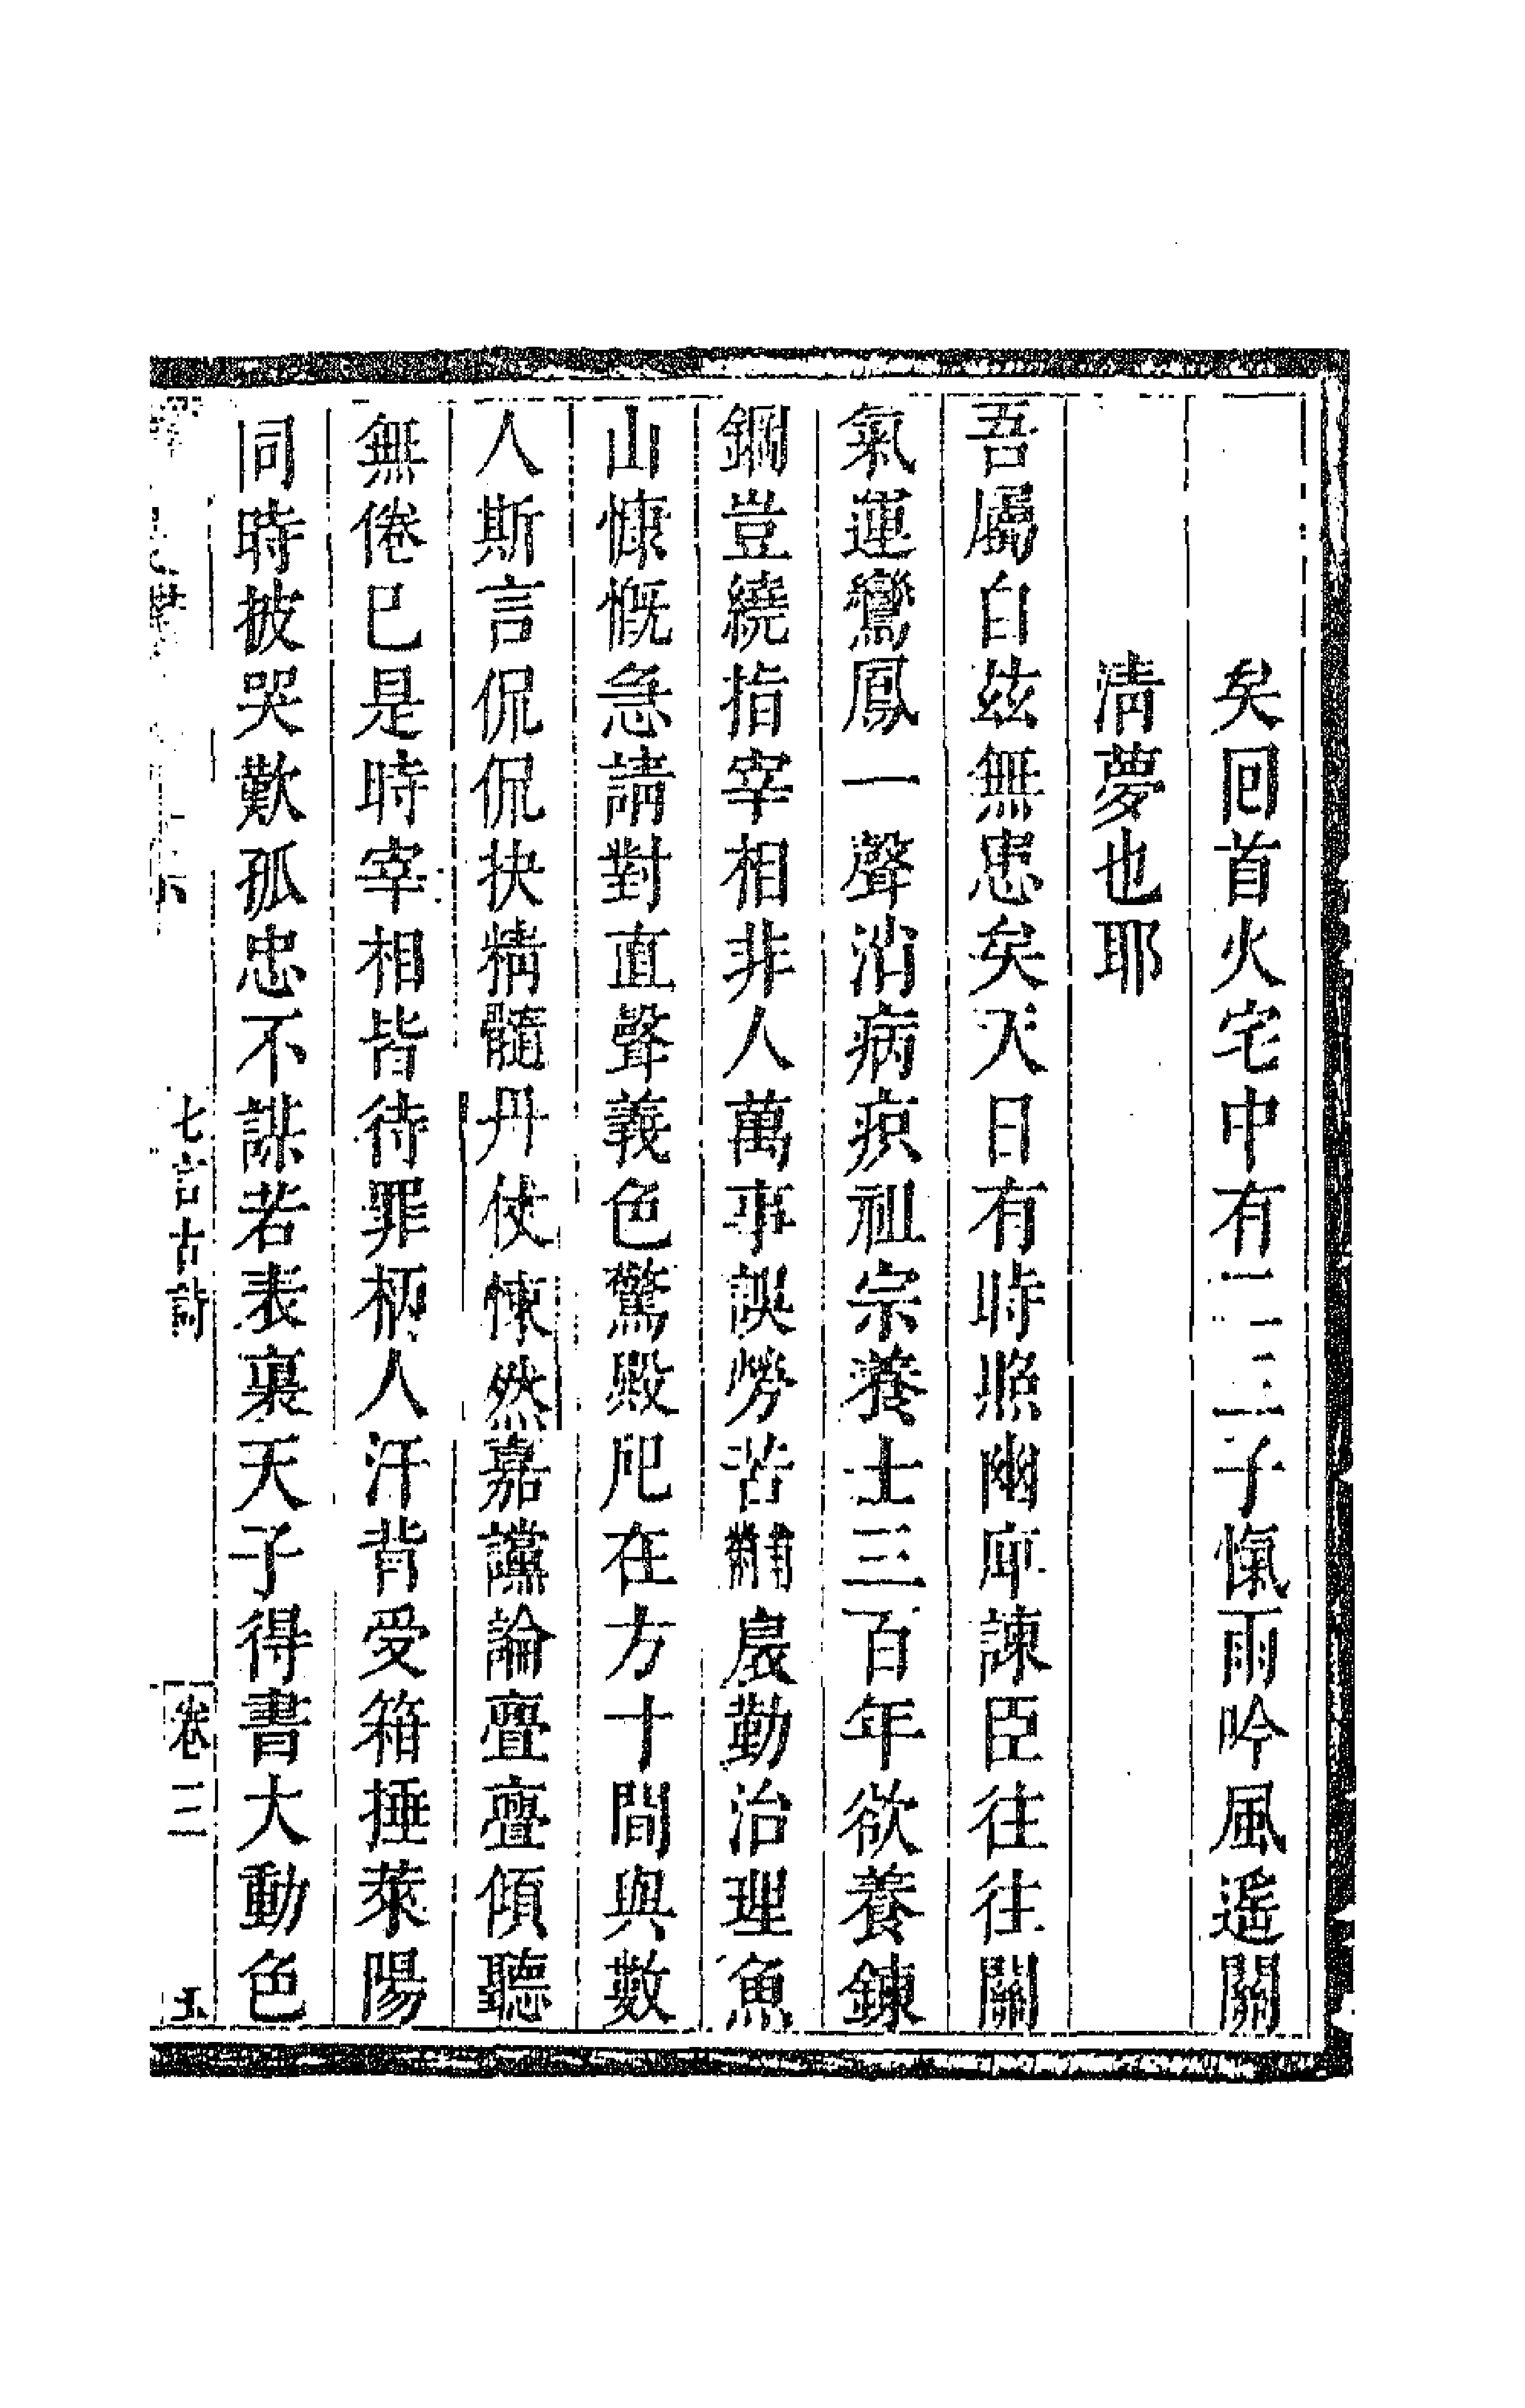 矣回首火宅中有二三子愾雨吟風遥關
清夢也耶
吾屬自茲無患矣天日有時照幽庳諫臣往往關
氣運鸞鳳一聲消病祖宗養士三百年欲養鍊
鋼豈繞指宰相非人萬事誤勞苦黼扆勤治理魚
山慷慨急請對直聲義色驚殿戺在方十間與數
人斯言侃侃抉精髓丹仗悚然嘉讜論亹亹傾聽
無倦已是時宰相皆待罪柄人汗背受箱捶萊陽
同時披哭歎孤忠不謀若表裏天子得書大動色
七言古詩 卷三 五